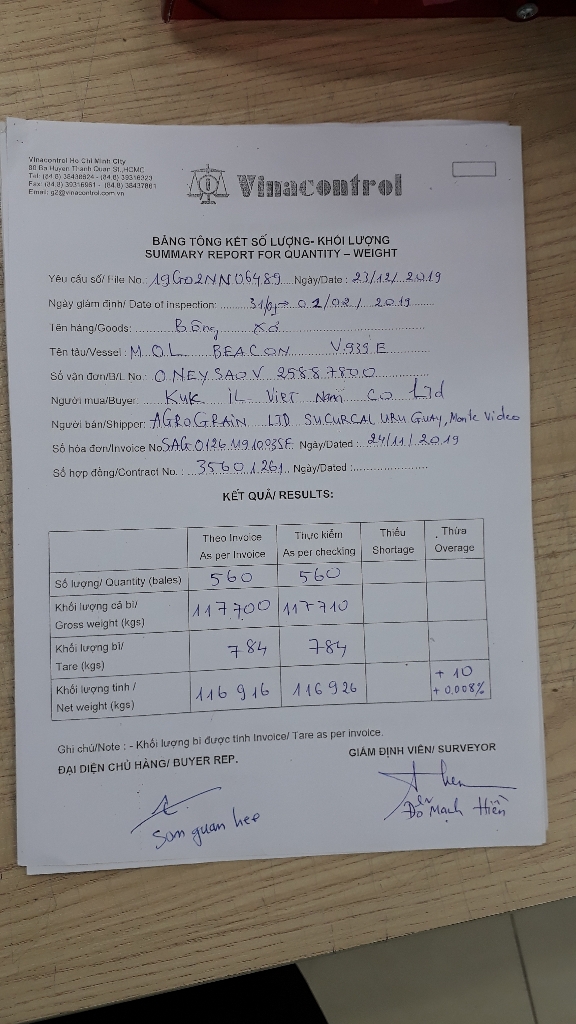 Vinacontrol Ho Chi Minh City
80 Ba Huyen Thanh Quan St.,HCMC
Tel: (84.8) 38438624 - (84.8) 39316323
Fax: (84.8) 39316961 - (84.8) 38437861
Email: g2@vinacontrol.com.vn
Vinacontrol
BẢNG TỔNG KẾT SỐ LƯỢNG- KHỐI LƯỢNG
SUMMARY REPORT FOR QUANTITY – WEIGHT
Yêu cầu số/ File No.: 19G02NN06489 Ngày/Date : 23/12/2019
Ngày giám định/ Date of inspection: 02/02/2019
Tên hàng/Goods: Bông xơ
Tên tàu/Vessel : M.O.L BEACON V.939E
Số vận đơn/B/L No.: ONEYSAOV 25887800
Người mua/Buyer: Kuk IL Việt Nam CO Ltd
Người bán/Shipper: AGROGRAIN LTD SUCURCAL URUGUAY, Monte Video
Số hóa đơn/Invoice No. Ngày/Dated : 24/11/2019
Số hợp đồng/Contract No. : 35601261 Ngày/Dated :
KẾT QUẢ/ RESULTS:
Theo Invoice As per Invoice Thực kiểm As per checking Thiếu Shortage Thừa Overage
Số lượng/ Quantity (bales) 560 560
Khối lượng cả bì/ Gross weight (kgs) 117700 117710
Khối lượng bì/ Tare (kgs) 784 784
Khối lượng tịnh / Net weight (kgs) 116916 116926 +10 +0,008%
Ghi chú/Note : - Khối lượng bì được tính Invoice/ Tare as per invoice.
ĐẠI DIỆN CHỦ HÀNG/ BUYER REP. GIÁM ĐỊNH VIÊN/ SURVEYOR
Son guan hee
Đỗ Mạnh Hiền